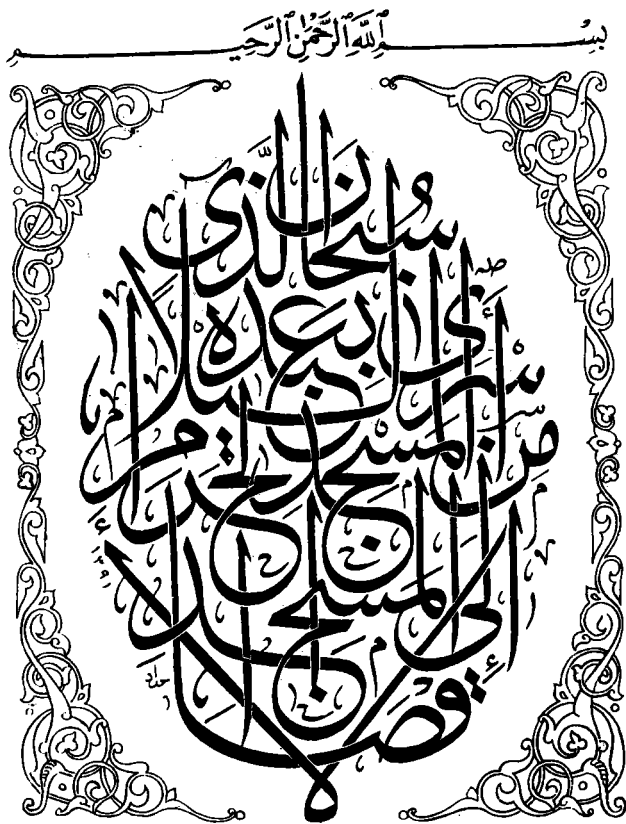 بِسْمِ ٱللَّهِ ٱلرَّحْمَٰنِ ٱلرَّحِيمِ
سُبْحَانَ الَّذِي
أَسْرَى بِعَبْدِهِ لَيْلًا
مِنَ الْمَسْجِدِ الْحَرَامِ
إِلَى الْمَسْجِدِ
الْأَقْصَا